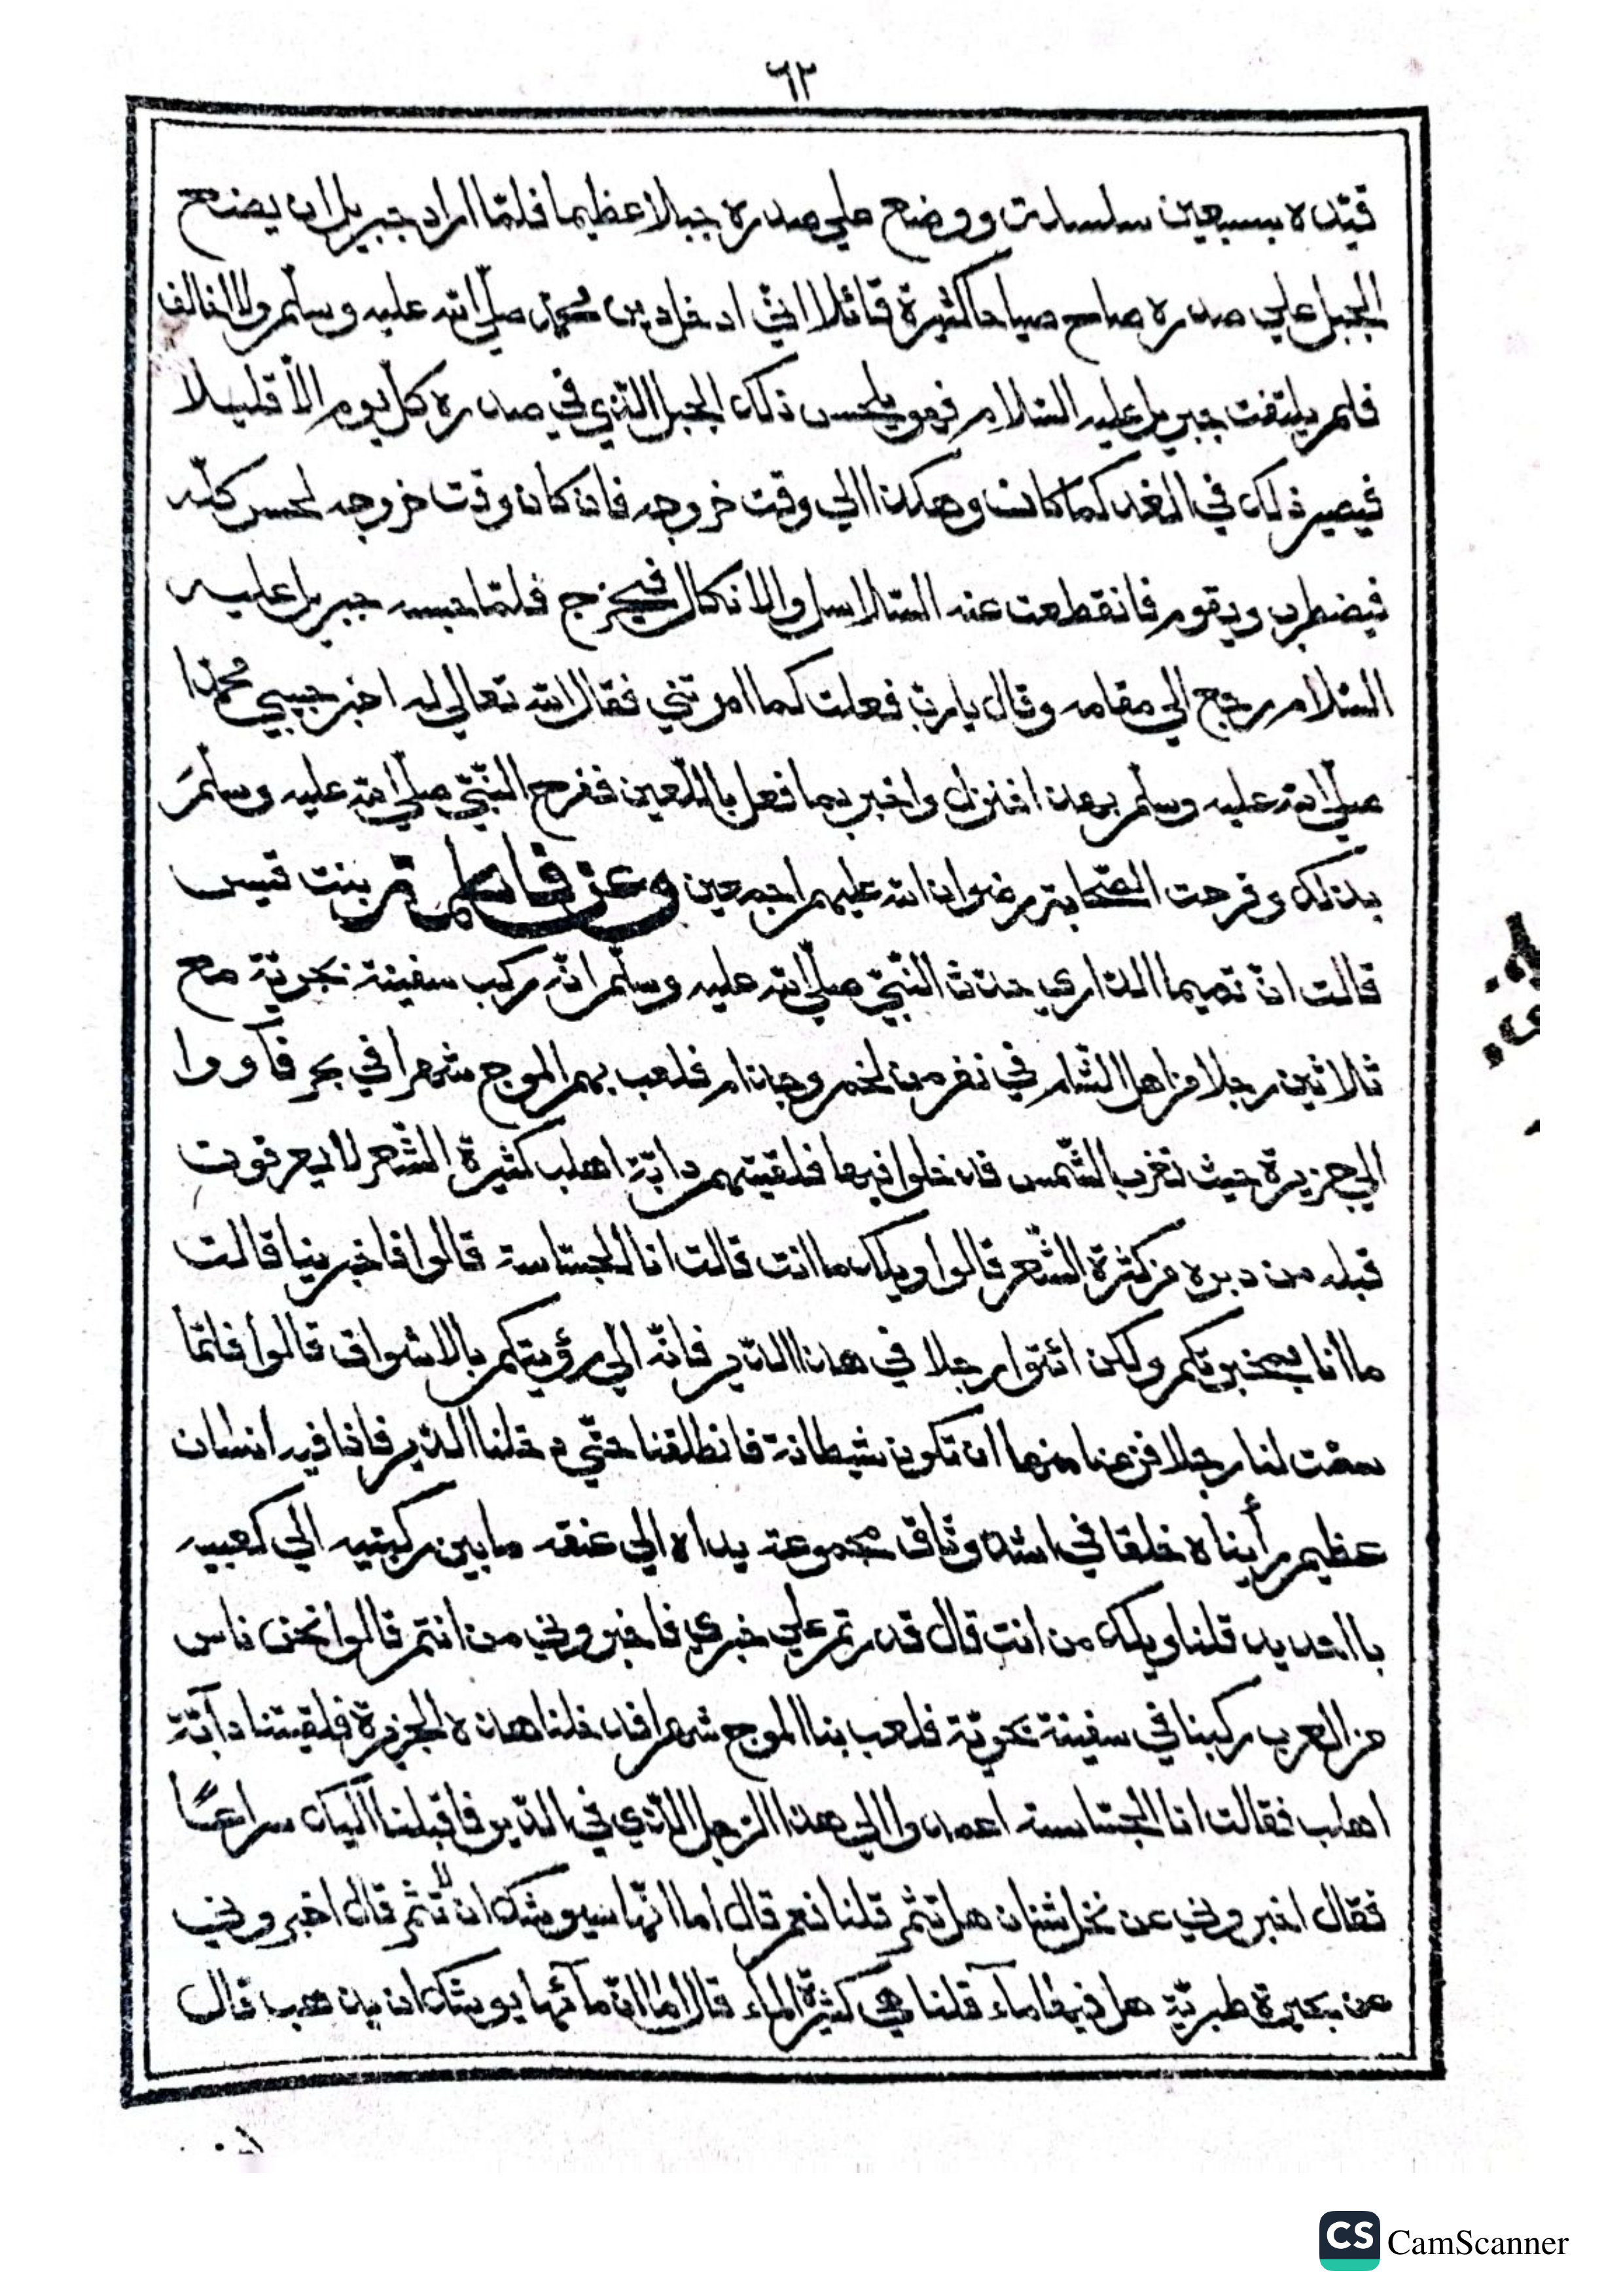 ٦٢
قيّده بسبعين سلسلت ووضع علي صدره جبلا عظيما فلمّا اراد جبريل ان يضع
الجبل علي صدره صاح صياحا كثيرة قائلا انّي ادخل دين محمّد صلّي الله عليه وسلّم ولا اخالف
فلم يلتفت جبريل عليه السّلام فهو يلحس ذلك الجبل الّذي في صدره كلّ يوم الاّ قليلا
فيصير ذلك في الغد كما كانت وهكذا الي وقت خروجه فان كان وقت خروجه لحس كلّه
فيضطرب ويقوم فانقطعت عنه السّلاسل والانكال فيخرج فلمّا حبسه جبريل عليه
السّلام رجع الي مقامه وقال يا ربّ فعلت كما امرتني فقال الله تعالي له اخبر حبيبي محمّدا
صلّي الله عليه وسلّم بهذا فنزل واخبر بما فعل باللّعين ففرح النّبيّ صلّي الله عليه وسلّمَ
بذلك وفرحت الصّحابة رضوان الله عليهم اجمعين وعن فاطمة بنت قيس
قالت انّ تميما الدّاري حدّث النّبيّ صلّي الله عليه وسلّم انّه ركب سفينة بحريّة مع
ثلاثين رجلا من اهل الشّام في نفر من لخم وجذام فلعب بهم الموج شهرا في بحر فآووا
الي جزيرة حيث تغرب الشّمس فدخلوا فيها فلقيتهم دابّة اهلب كثيرة الشّعر لا يعرفون
قبله من دبره من كثرة الشّعر قالوا ويلك ما انت قالت انا الجسّاسة قالوا فاخبرينا قالت
ما أنا بمخبرتكم ولكن ائتوا رجلا في هذا الدّير فانّه الي رؤيتكم بالاشواق قالوا فلمّا
سمّت لنا رجلا فزعنا منها ان تكون شيطانة فانطلقنا حتّي دخلنا الدّير فاذا فيه انسان
عظيم رأيناه خلقا في اشدّ وثاق مجموعة يداه الي عنقه ما بين ركبتيه الي كعبيه
بالحديد قلنا ويلك من انت قال قدرتم علي خبري فاخبروني من انتم قالوا نحن ناس
من العرب ركبنا في سفينة بحريّة فلعب بنا الموج شهرا فدخلنا هذه الجزيرة فلقيتنا دآبّة
اهلب فقالت انا الجسّاسة اعمدوا الي هذا الرّجل الّذي في الدّير فاقبلنا اليك سراعًا
فقال اخبروني عن نخل بيسان هل تثمر قلنا نعم قال اما انّها سيوشك ان لا تثمر قال اخبروني
عن بحيرة طبريّة هل فيها مآء قلنا هي كثيرة المآء قال اما انّ مآئها يوشك ان يذهب قال